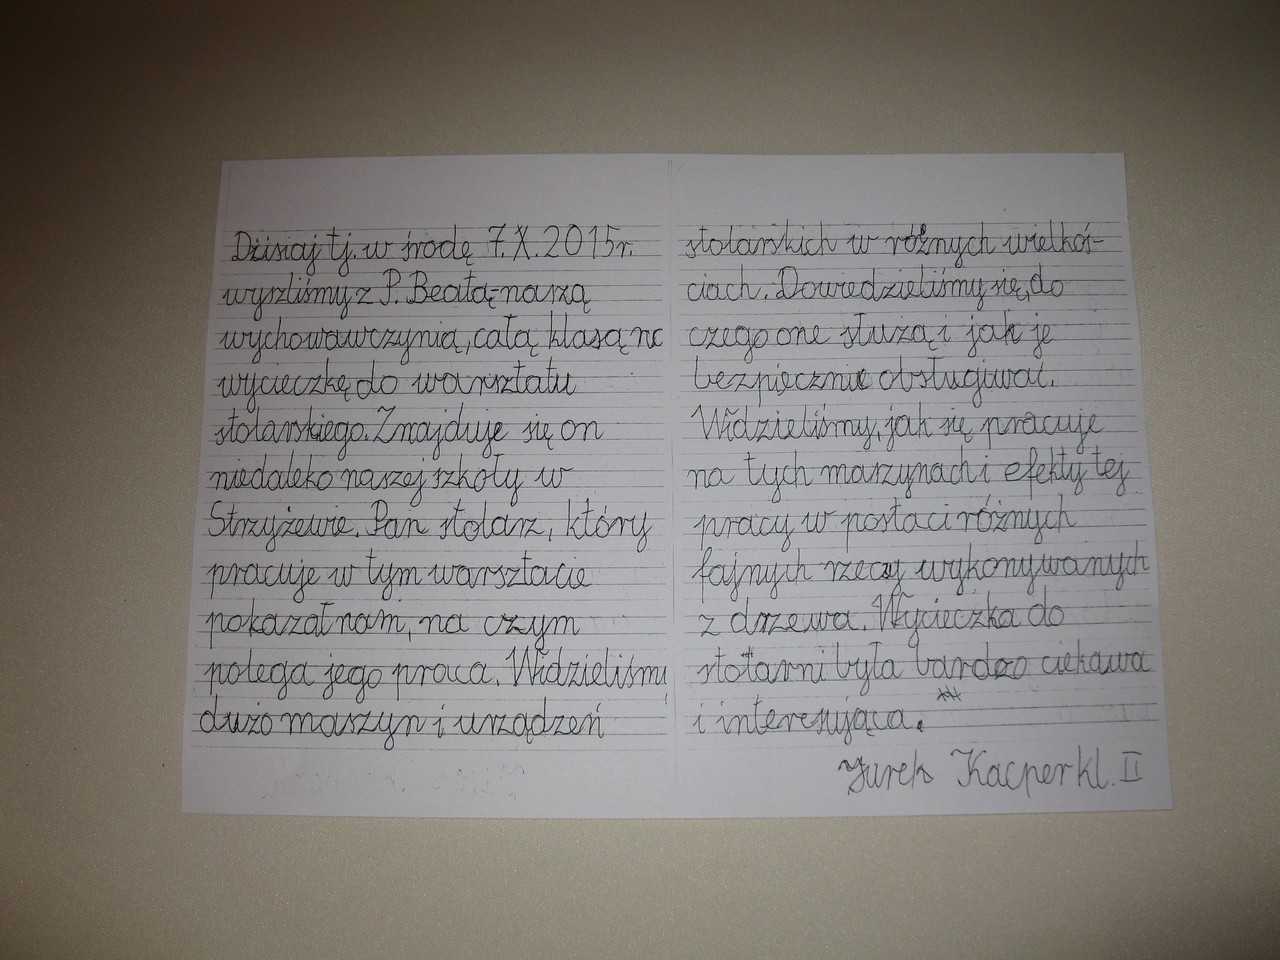 Dzisiaj tj. w środę 7.X.2015r.
wyszliśmy z P. Beatą-naszą
wychowawczynią, całą klasą na
wycieczkę do warsztatu
stolarskiego. Znajduje się on
niedaleko naszej szkoły w
Strzyżewie. Pan stolarz, który
pracuje w tym warsztacie
pokazał nam, na czym
polega jego praca. Widzieliśmy
dużo maszyn i urządzeń
stolarskich w różnych wielkoś-
ciach. Dowiedzieliśmy się, do
czego one służą i jak je
bezpiecznie obsługiwać.
Widzieliśmy, jak się pracuje
na tych maszynach i efekty tej
pracy w postaci różnych
fajnych rzeczy wykonywanych
z drzewa. Wycieczka do
stolarni była bardzo ciekawa
i interesująca.
Jurek Kacper kl. II